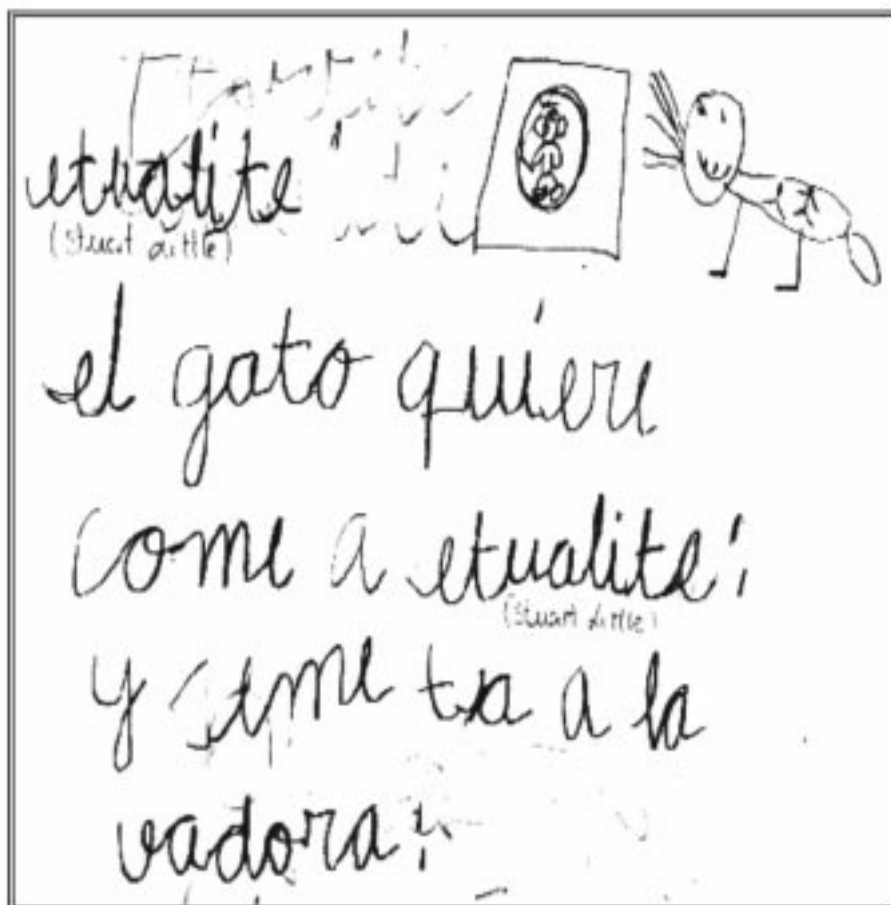 etualite
(Stuart Little)
el gato quiere
come a etualite!
(Stuart Little)
y seme ta a la
vadora!